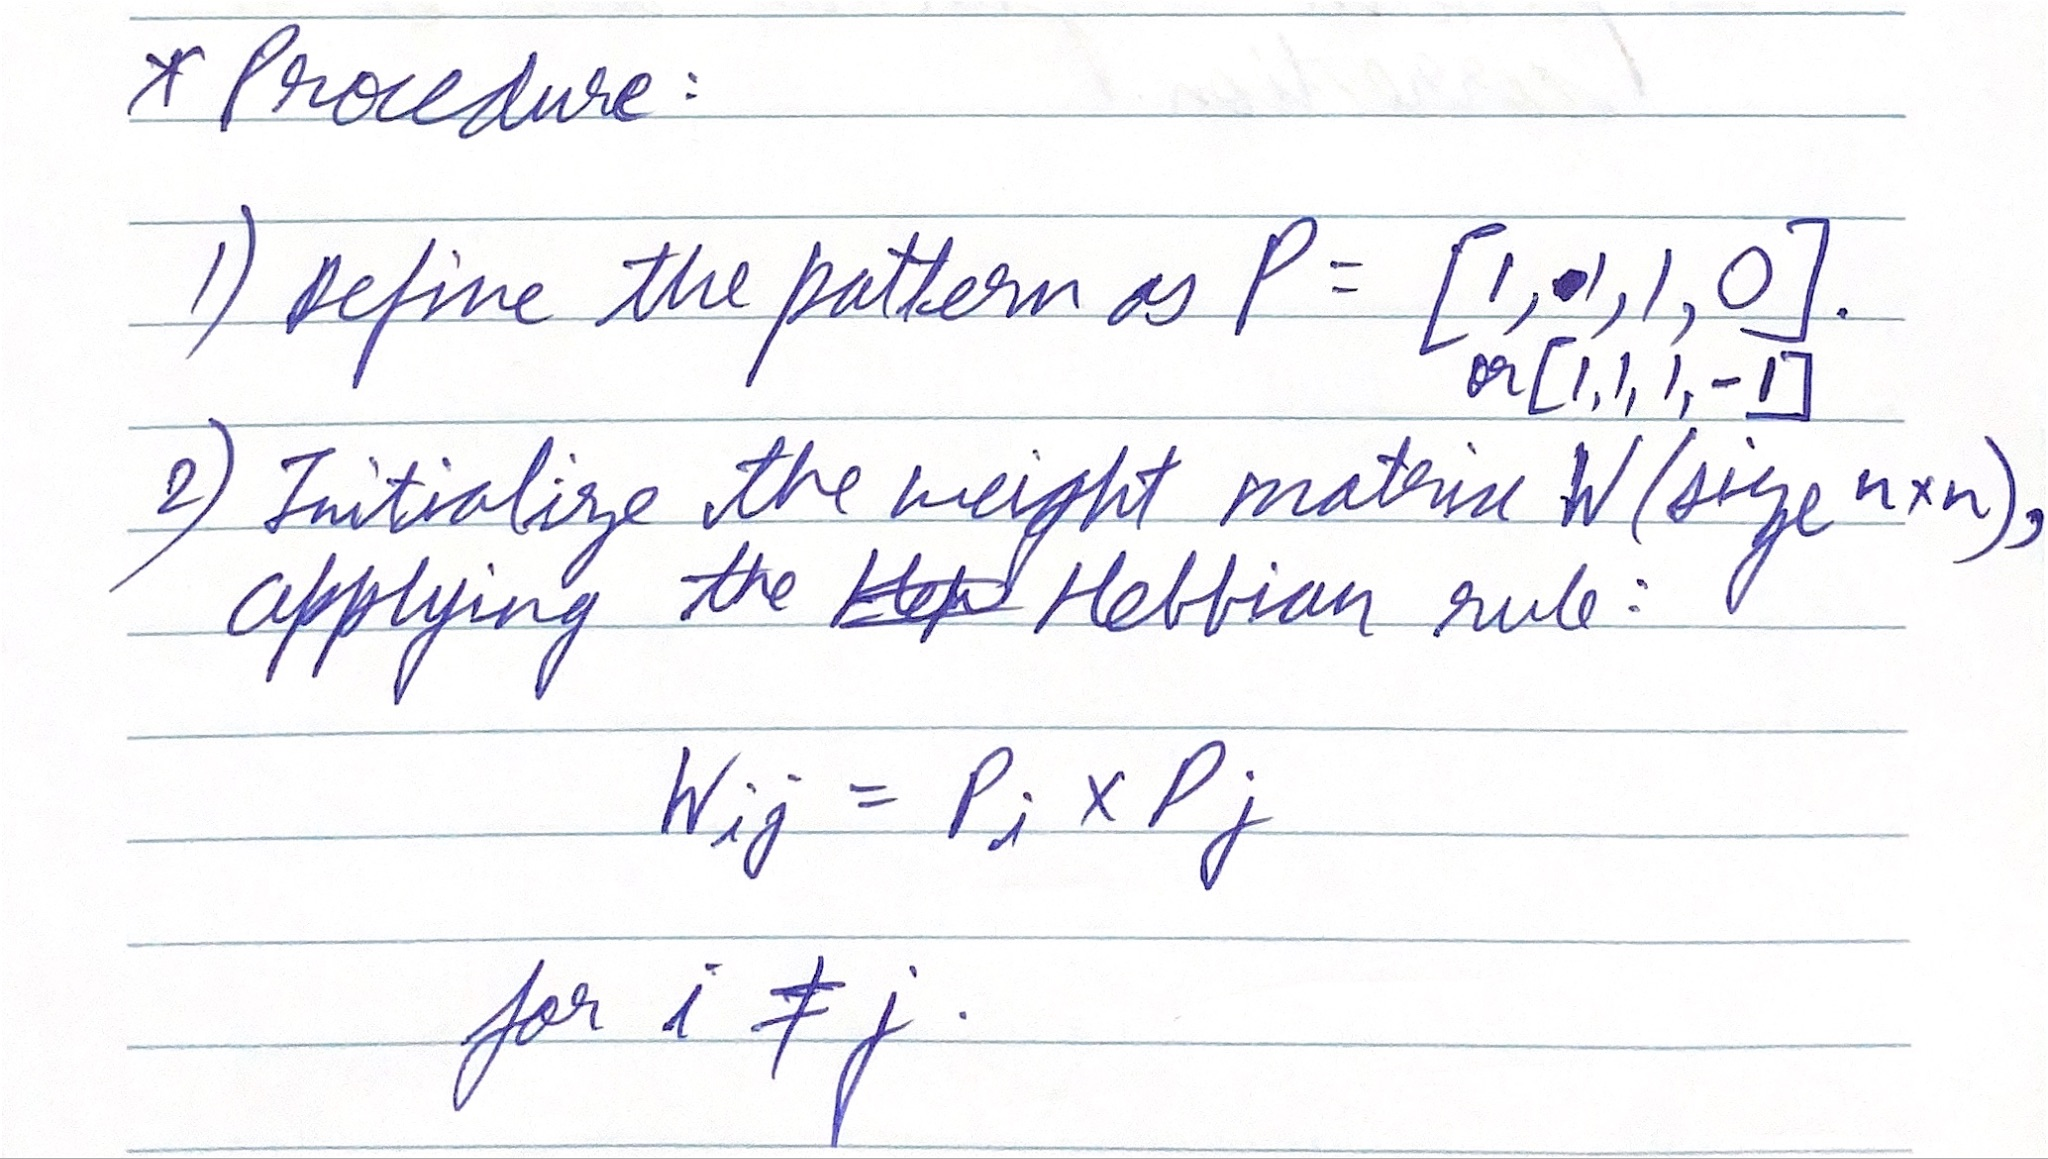 * Procedure:
1) Define the pattern as P = [1, 1, 1, 0].
or [1, 1, 1, -1]
2) Initialize the weight matrix W (size n×n),
applying the Hebbian rule:
Wij = Pi × Pj
for i ≠ j.